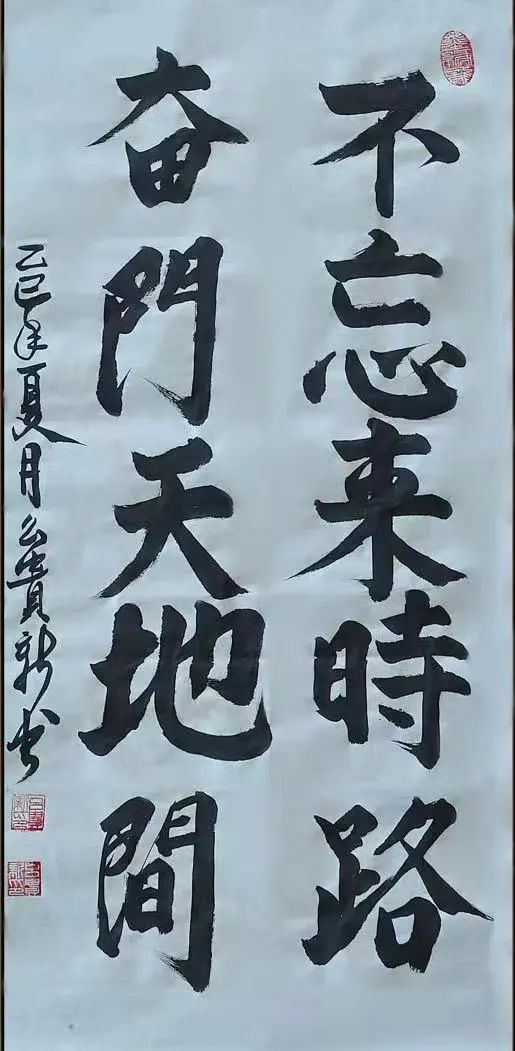 不忘来時路
奋門天地間
乙巳年夏月貴新书